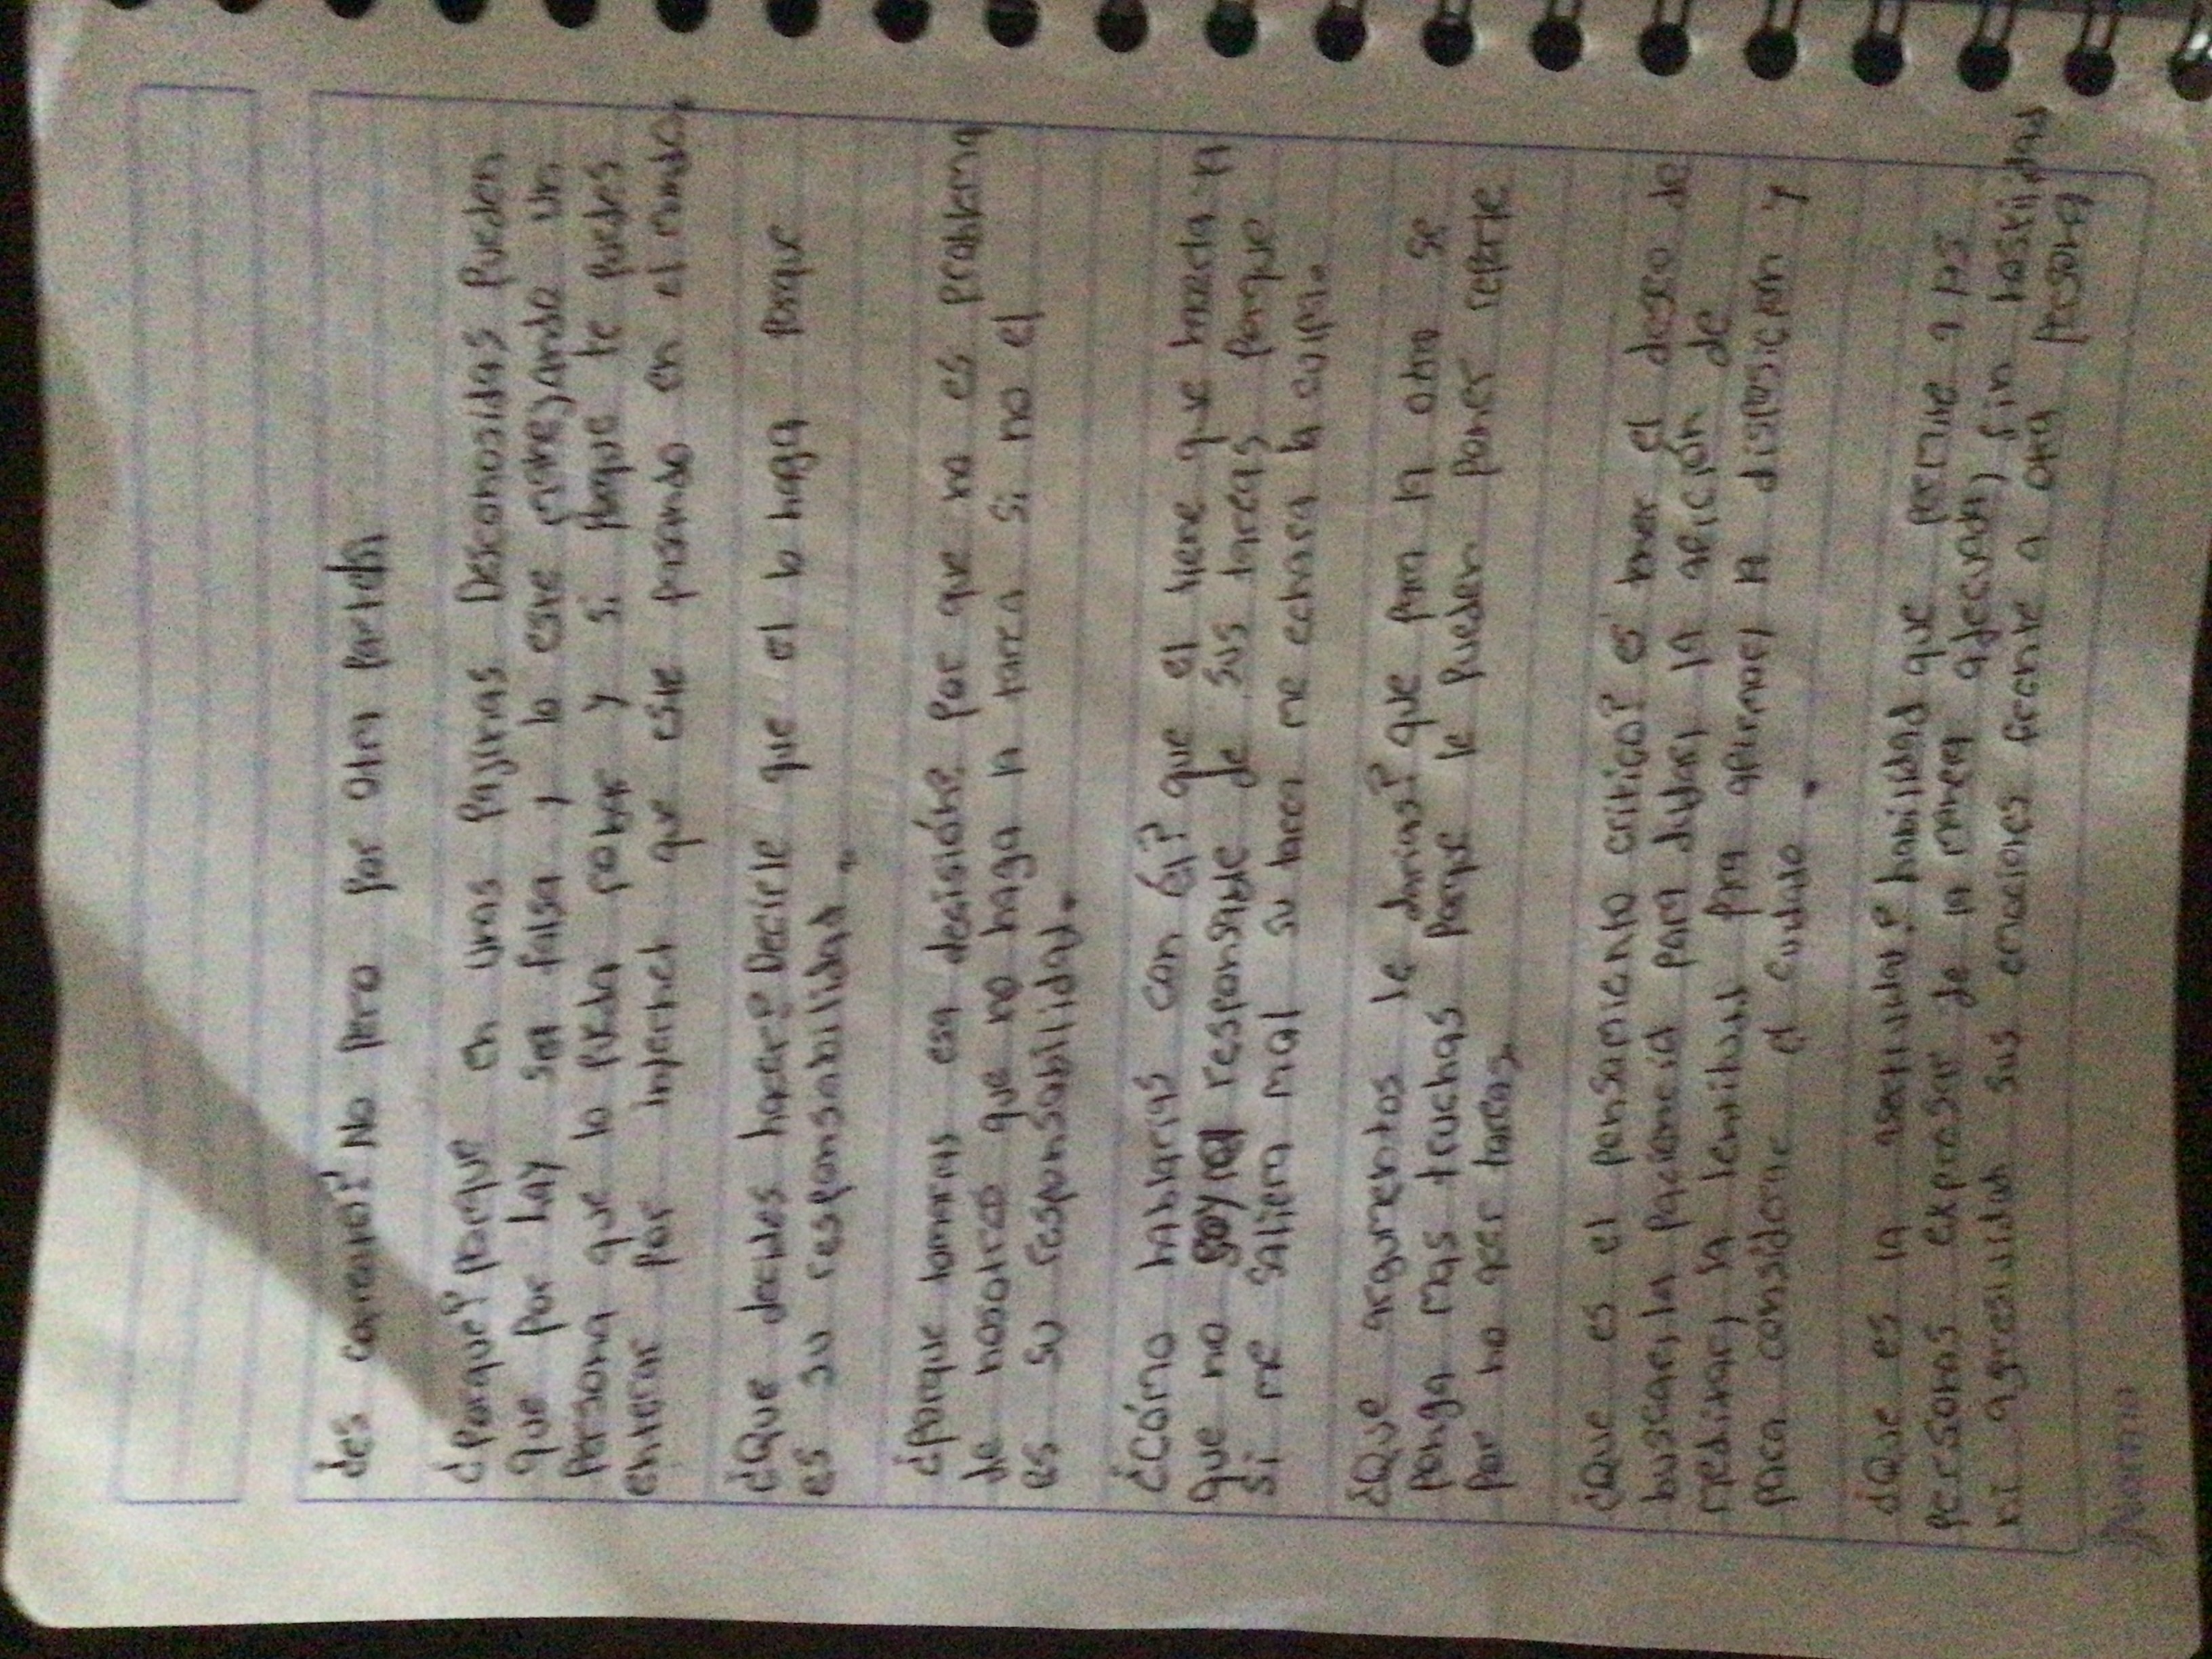 ¿es correcto? No pero por otra parte si
¿porque? porque en unas paginas Desconosidas pueden
que por hay sea falsa y lo este ingresando un
Persona que lo pueda robar y si porque te puedes
enterar por internet que este pasando en el mundo.
¿Que decides hacer? Decirle que el lo haga porque
es su responsabilidad.
¿porque tomaras esa decisión? Por que no es problema
de nosotros que no haga la tarea si no el
es su responsabilidad.
¿Cómo hablarias con él? que el tiene que hacerla
que no soy responsable de sus tareas porque
si me saliera mal su tarea me echara la culpa.
¿Que argumentos le darias? que para la otra se
ponga mas truchas porque le pueden poner reporte
por no acer tareas.
¿Que es el pensamiento critico? es tener el deseo de
buscar, la paciencia para dudar, la afición de
meditar, la lentitud para afirmar, la disposicion y
para considerar el cuidado.
¿Que es la asertividad? habilidad que permite a las
personas exprosar de la manera adecuada, sin hostilidad
ni agresividad sus emociones frente a otra persona